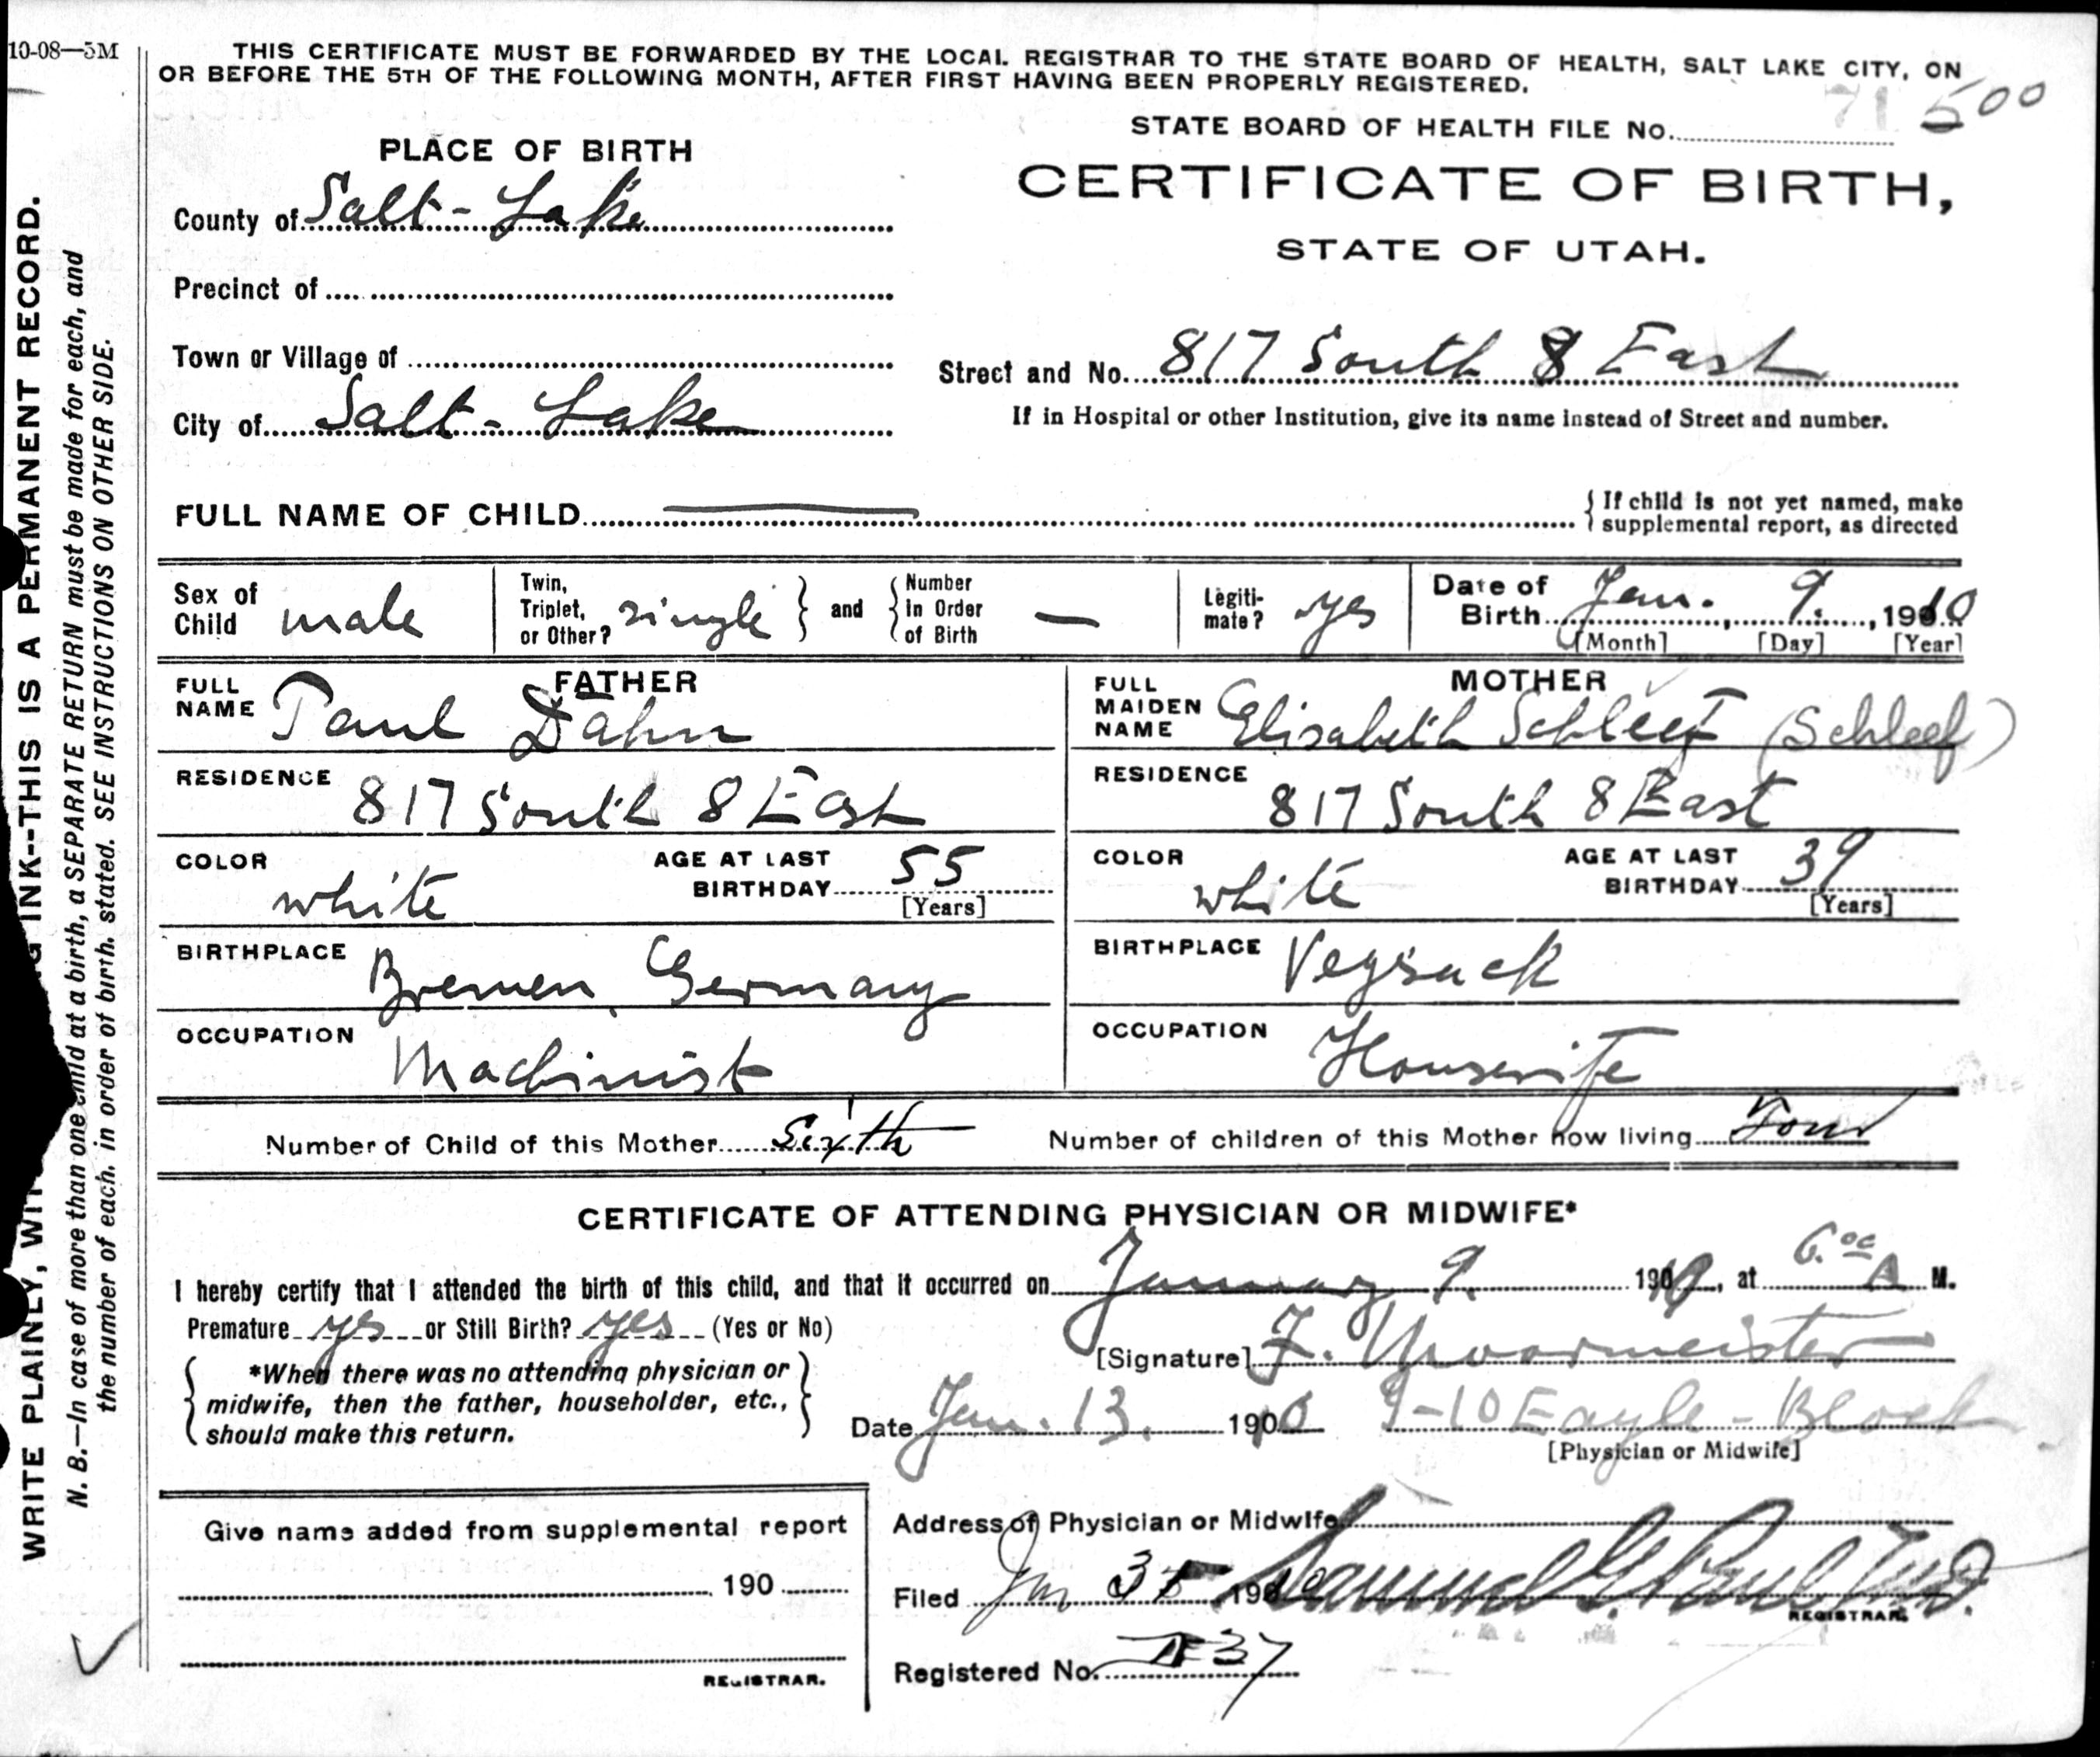 10-08—5M
THIS CERTIFICATE MUST BE FORWARDED BY THE LOCAL REGISTRAR TO THE STATE BOARD OF HEALTH, SALT LAKE CITY, ON
OR BEFORE THE 5TH OF THE FOLLOWING MONTH, AFTER FIRST HAVING BEEN PROPERLY REGISTERED.
STATE BOARD OF HEALTH FILE No. 71 500
PLACE OF BIRTH
CERTIFICATE OF BIRTH,
STATE OF UTAH.
County of Salt-Lake
Precinct of
Town or Village of
City of Salt-Lake
Street and No. 817 South 8 East
If in Hospital or other Institution, give its name instead of Street and number.
FULL NAME OF CHILD —
{ If child is not yet named, make
supplemental report, as directed
Sex of Child male
Twin, Triplet, or Other? single } and { Number in Order of Birth —
Legiti-mate? yes
Date of Birth Jan. 9., 1910
[Month] [Day] [Year]
FATHER
FULL NAME Paul Dahn
RESIDENCE 817 South 8 East
COLOR white
AGE AT LAST BIRTHDAY 55
[Years]
BIRTHPLACE Bremen, Germany
OCCUPATION Machinist
MOTHER
FULL MAIDEN NAME Elisabeth Schleef (Schleef)
RESIDENCE 817 South 8 East
COLOR white
AGE AT LAST BIRTHDAY 39
[Years]
BIRTHPLACE Vegsack
OCCUPATION Housewife
Number of Child of this Mother Sixth
Number of children of this Mother now living Four
CERTIFICATE OF ATTENDING PHYSICIAN OR MIDWIFE*
I hereby certify that I attended the birth of this child, and that it occurred on January 9. 1910, at 6.00 A M.
Premature yes or Still Birth? yes (Yes or No)
[Signature] F.
{ *When there was no attending physician or
midwife, then the father, householder, etc.,
should make this return. }
Date Jan. 13. 1910
9-10 Eagle-Block
[Physician or Midwife]
Give name added from supplemental report
190
REGISTRAR.
Address of Physician or Midwife
Filed Jan 31 1910 Samuel G. Paul M.D.
REGISTRAR.
Registered No. 37
WRITE PLAINLY, WITH INK--THIS IS A PERMANENT RECORD.
N. B.—In case of more than one child at a birth, a SEPARATE RETURN must be made for each, and
the number of each. in order of birth. stated. SEE INSTRUCTIONS ON OTHER SIDE.